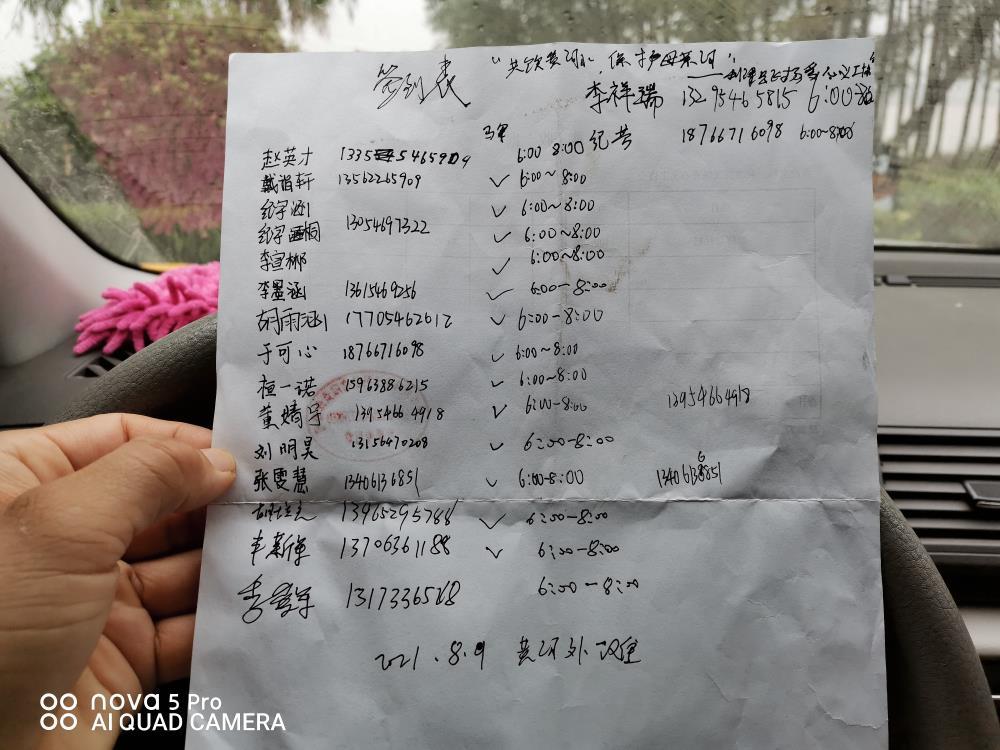 签到表 "共饮黄河水,保护母亲河"
李祥瑞 13295465815 6:00
6:00 8:00 纪芳 18766716098 6:00~8:00
赵英才 1335 5465909
戴诣轩 13562265909 ✓ 6:00~8:00
纪宇涵 ✓ 6:00~8:00
纪宇桐 13054697322 ✓ 6:00~8:00
李宣郴 ✓ 6:00~8:00
李墨涵 13615469256 ✓ 6:00-8:00
胡雨涵 17705462612 ✓ 6:00-8:00
于可心 18766716098 ✓ 6:00~8:00
桓一诺 15963886215 ✓ 6:00~8:00
董婧 13954664918 ✓ 6:00-8:00 13954664918
刘明昊 13156470208 ✓ 6:00-8:00
张雯慧 13406136851 ✓ 6:00-8:00 13406136851
13965295788 ✓ 6:00-8:00
丰新 13706361188 ✓ 6:00-8:00
李 6:00-8:00
2021.8.9 黄河外滩
nova 5 Pro
AI QUAD CAMERA